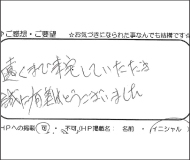 ・ご感想・ご要望 ☆お気づきになられた事なんでも結構です☆
遠くまで来宅していただき
誠に有難うございました
HPへの掲載 可・不可(HP掲載名: 名前 ・ イニシャル)